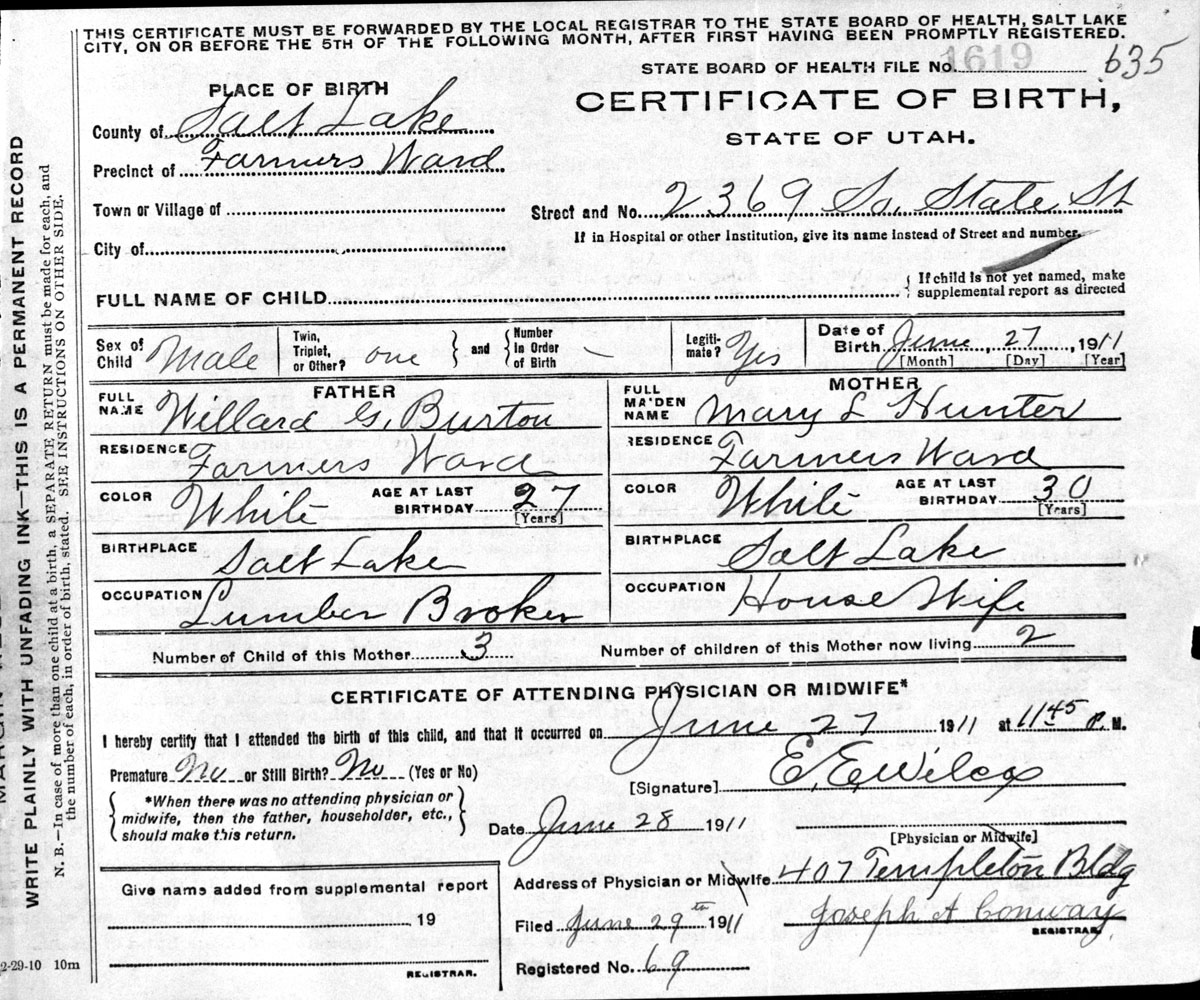 THIS CERTIFICATE MUST BE FORWARDED BY THE LOCAL REGISTRAR TO THE STATE BOARD OF HEALTH, SALT LAKE
CITY, ON OR BEFORE THE 5TH OF THE FOLLOWING MONTH, AFTER FIRST HAVING BEEN PROMPTLY REGISTERED.
STATE BOARD OF HEALTH FILE No. 1619 635
PLACE OF BIRTH
CERTIFICATE OF BIRTH,
STATE OF UTAH.
County of Salt Lake
Precinct of Farmers Ward
Town or Village of
Street and No. 2369 So. State St
City of
If in Hospital or other Institution, give its name instead of Street and number.
FULL NAME OF CHILD
If child is not yet named, make
supplemental report as directed
Sex of Child Male
Twin, Triplet, or Other? one
and Number in Order of Birth –
Legiti-mate? Yes
Date of Birth June 27, 1911
[Month] [Day] [Year]
FATHER
FULL NAME Willard G. Burton
RESIDENCE Farmers Ward
COLOR White AGE AT LAST BIRTHDAY 27
[Years]
BIRTHPLACE Salt Lake
OCCUPATION Lumber Broker
MOTHER
FULL MA'DEN NAME Mary L Hunter
RESIDENCE Farmers Ward
COLOR White AGE AT LAST BIRTHDAY 30
[Years]
BIRTHPLACE Salt Lake
OCCUPATION House Wife
Number of Child of this Mother 3 Number of children of this Mother now living 2
CERTIFICATE OF ATTENDING PHYSICIAN OR MIDWIFE*
I hereby certify that I attended the birth of this child, and that it occurred on June 27 1911 at 11 45 P. M.
Premature No or Still Birth? No (Yes or No)
[Signature] E. E. Wilcox
*When there was no attending physician or
midwife, then the father, householder, etc.,
should make this return.
Date June 28 1911
[Physician or Midwife]
Address of Physician or Midwife 407 Templeton Bldg
Give name added from supplemental report
19
REGISTRAR.
Filed June 29th 1911 Joseph A Conway
REGISTRAR.
Registered No. 69
2-29-10 10m
WRITE PLAINLY WITH UNFADING INK—THIS IS A PERMANENT RECORD
N. B.—In case of more than one child at a birth, a SEPARATE RETURN must be made for each, and
the number of each, in order of birth, stated. SEE INSTRUCTIONS ON OTHER SIDE.